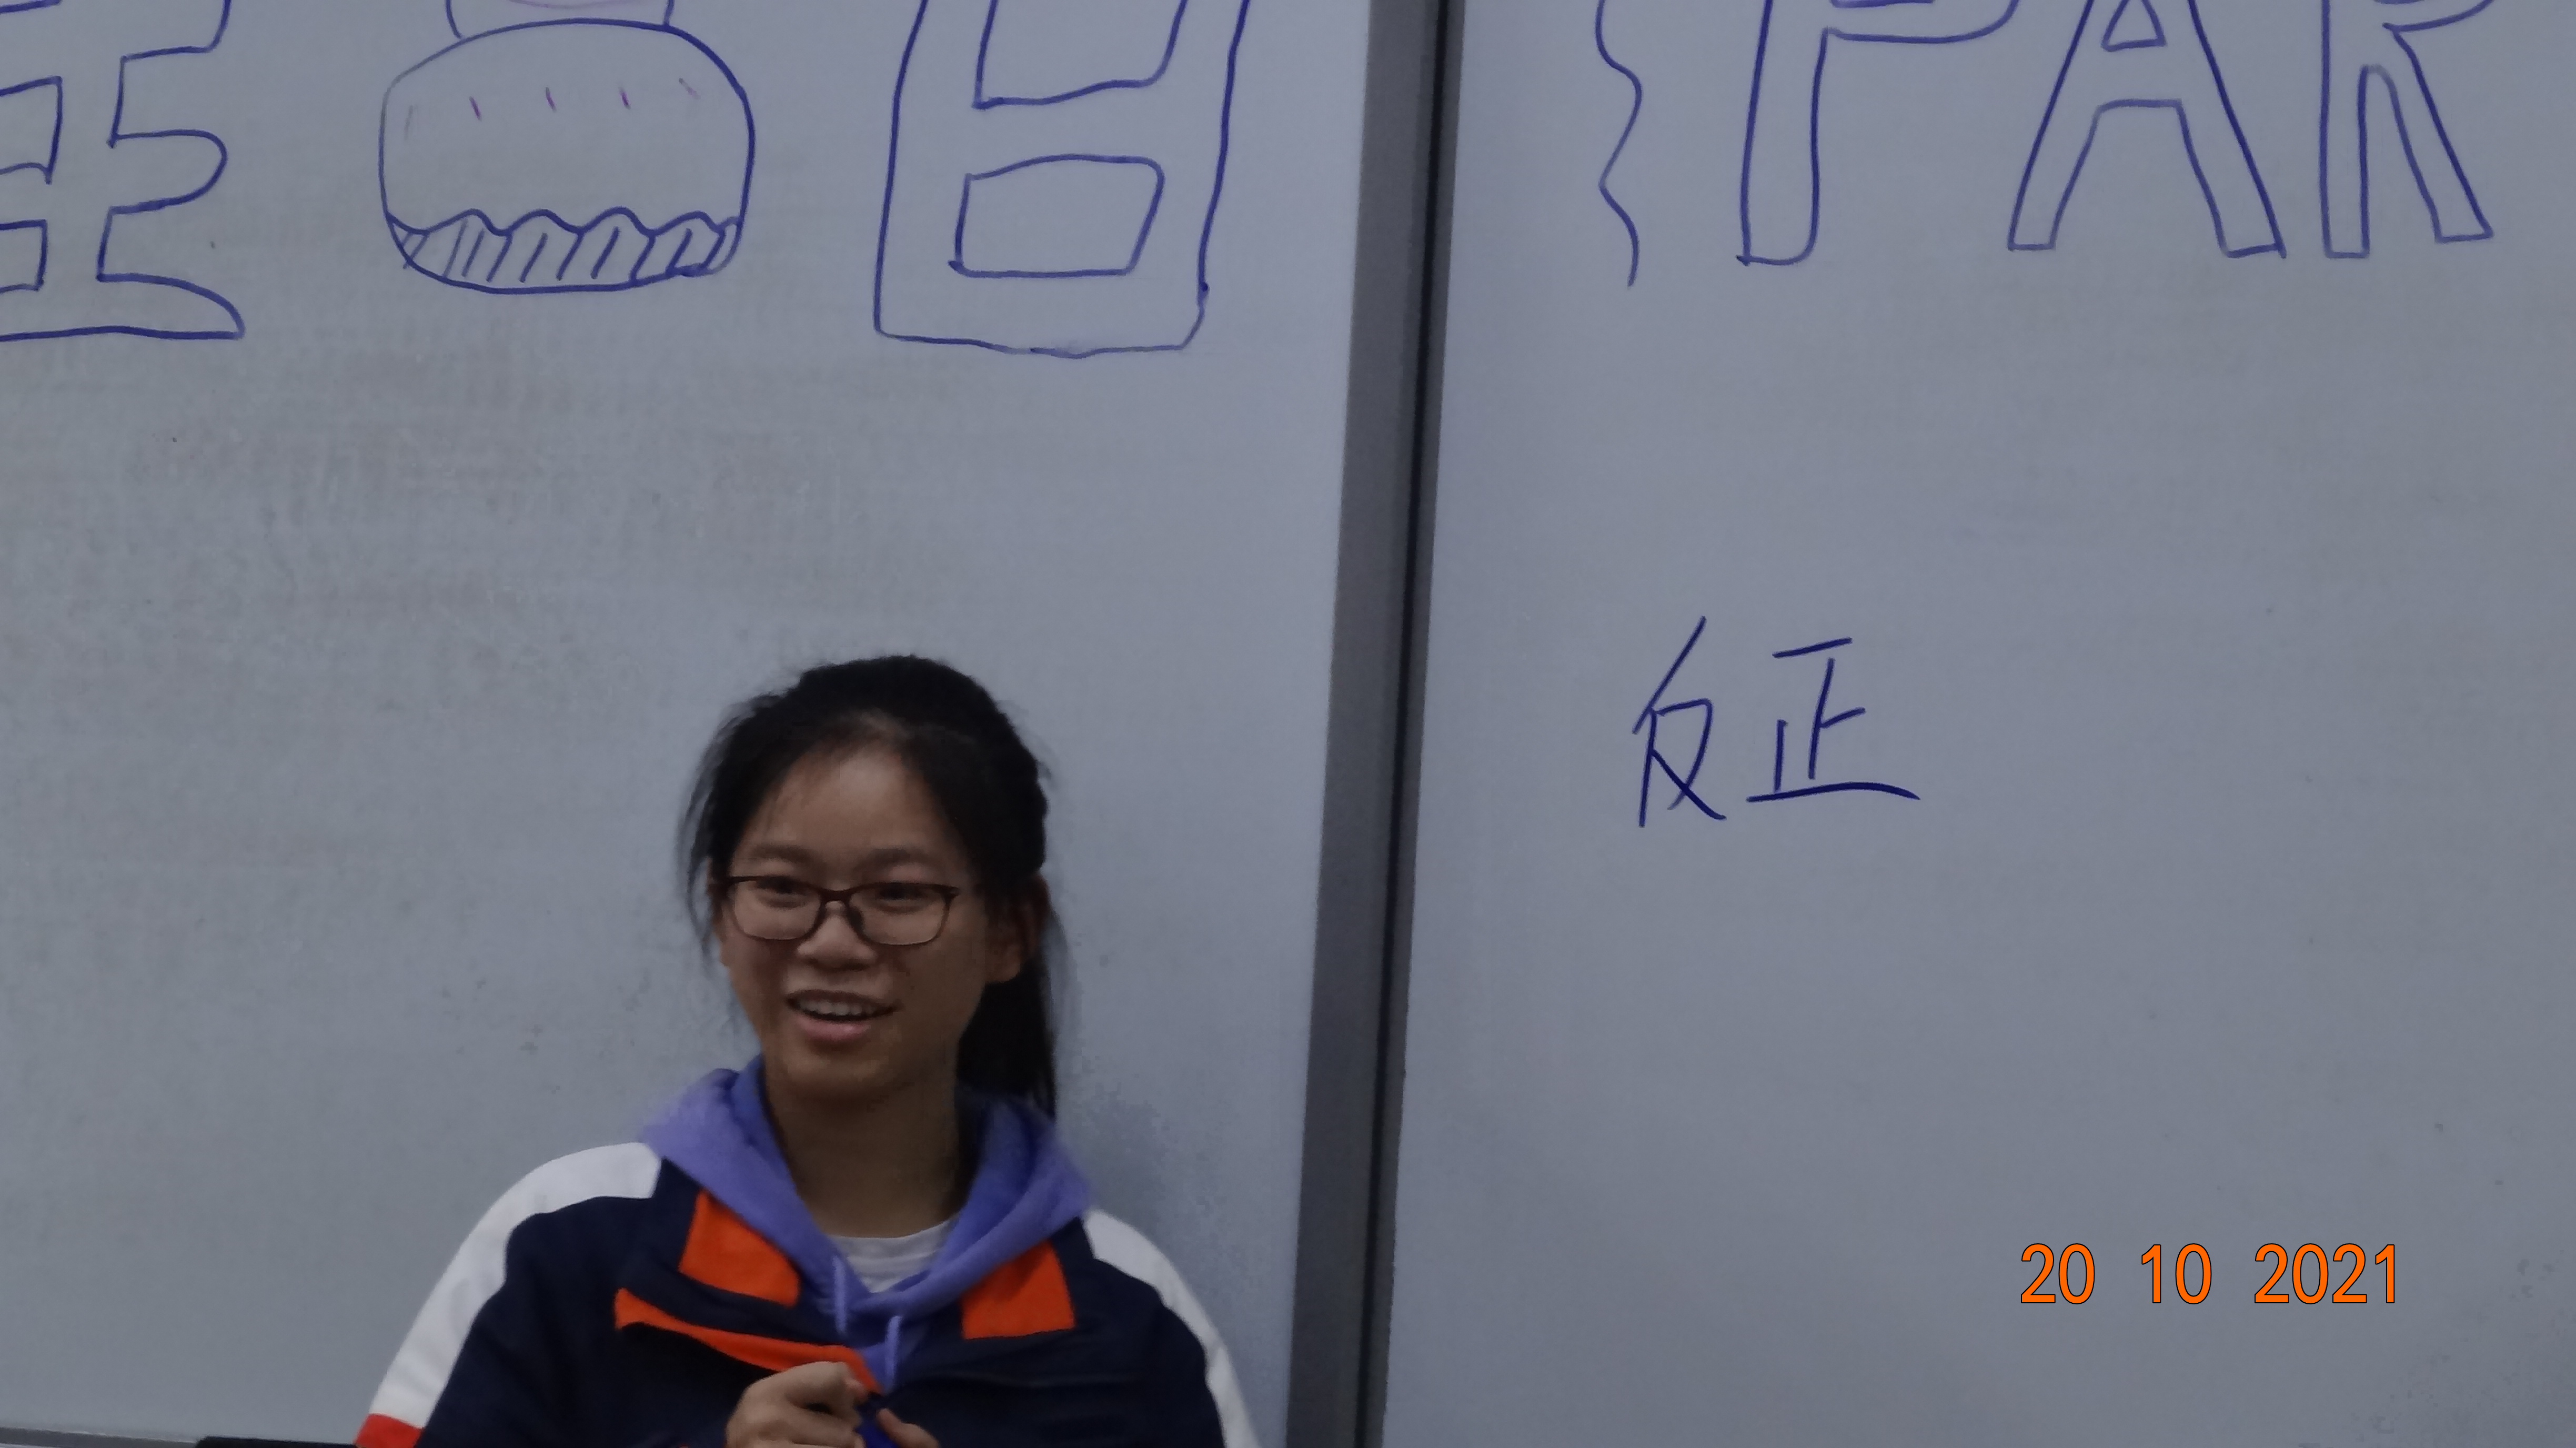 生 日 PAR
反正
20 10 2021